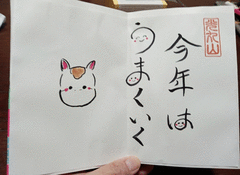 今年は
うまくいく